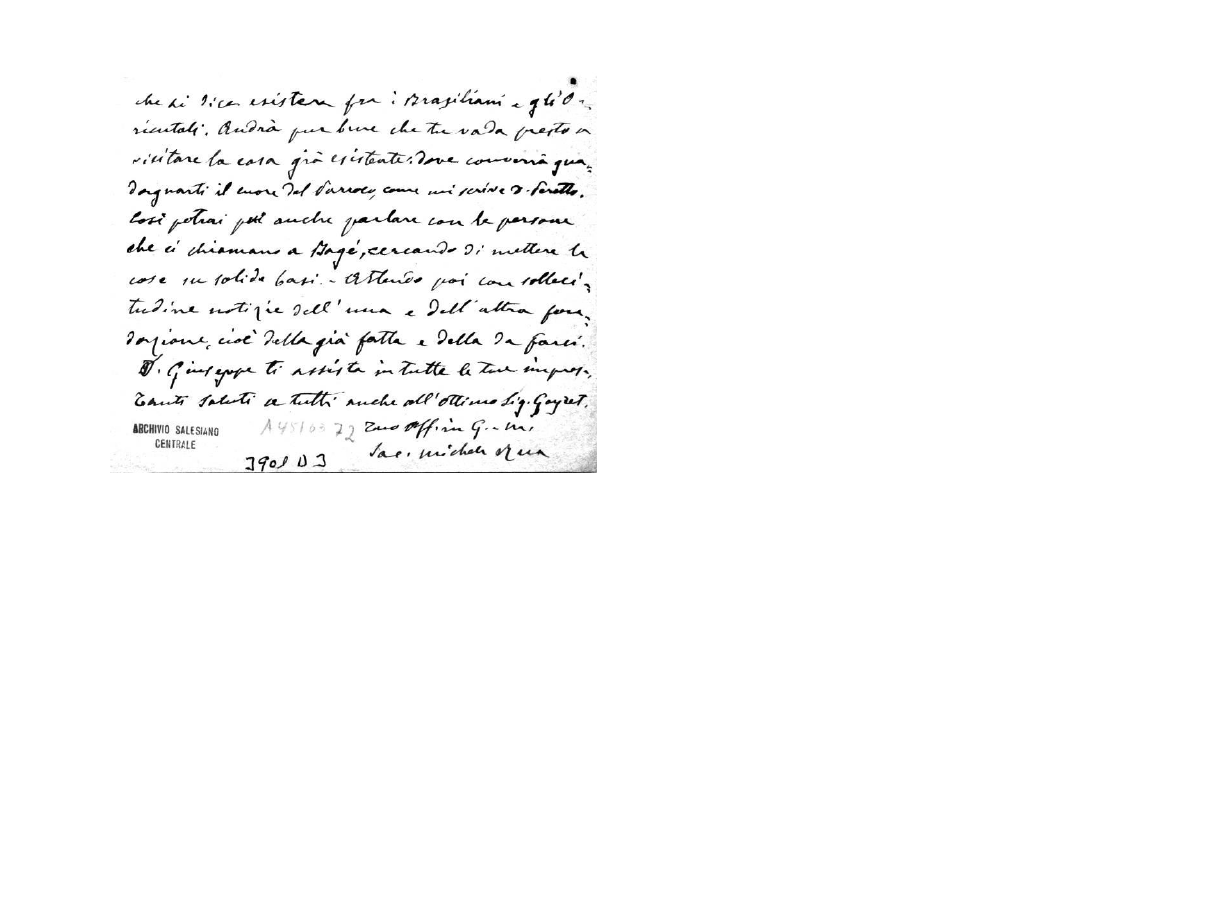 che si dice esistere fra i Brasiliani e gli O-
rientali. Andrà pur bene che tu vada presto a
visitare la casa già esistente: dove converrà gua-
dagnarti il cuore del Parroco, come mi scrive D. Peretto.
Così potrai poi anche parlare con le persone
che ci chiamano a Bagé, cercando di mettere le
cose su solide basi. - Attendo poi con solleci-
tudine notizie dell'una e dell'altra fon-
dazione, cioè della già fatta e della da farsi.
S. Giuseppe ti assista in tutte le tue imprese.
Tanti saluti a tutti anche all'ottimo Sig. Gayret.
Tuo aff.mo in G. e M.
Sac. Michele Rua
ARCHIVIO SALESIANO
CENTRALE
3901 D 3